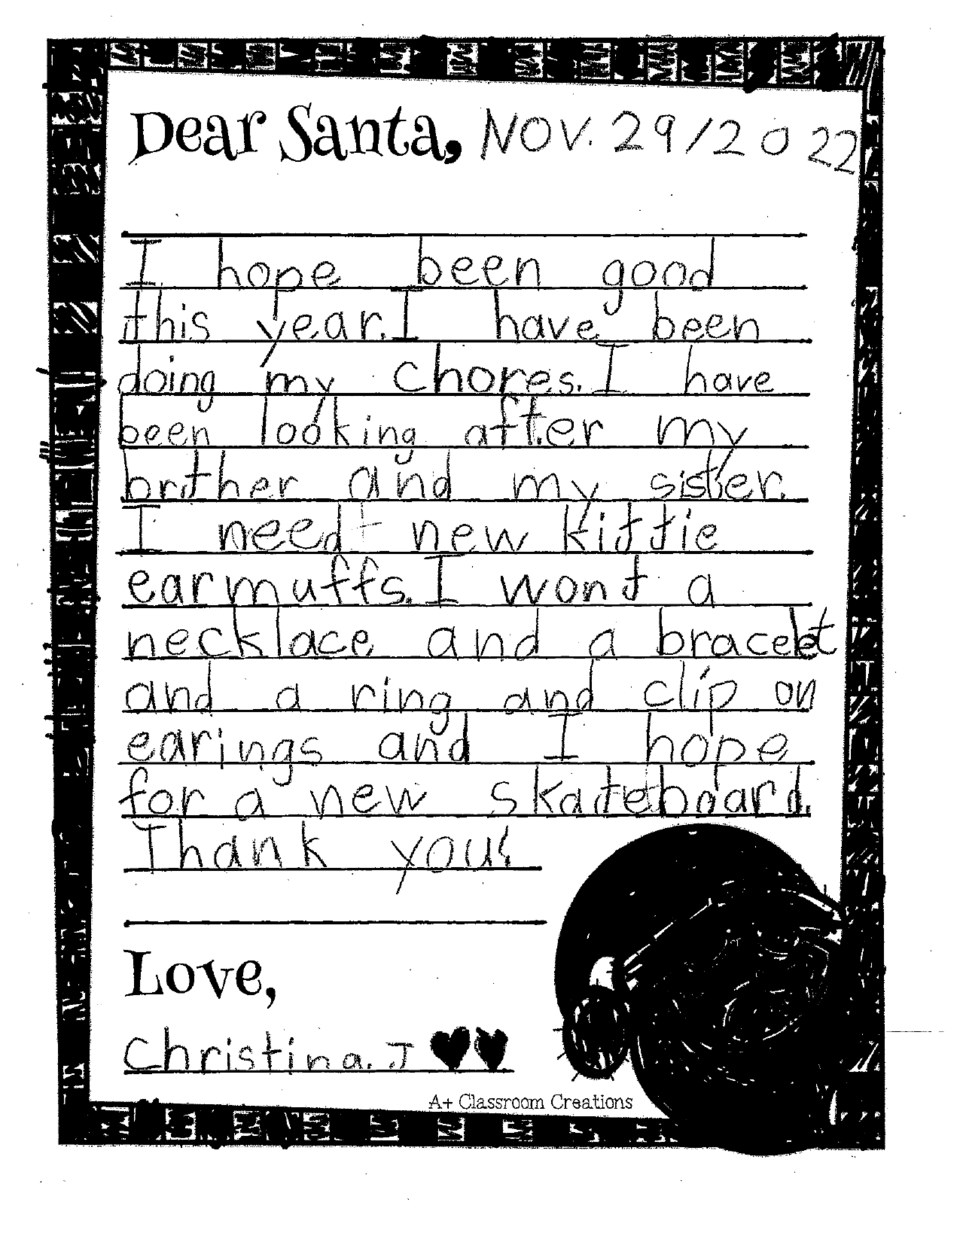 Dear Santa, NOV. 29/2022
I hope been good
this year. I have been
doing my chores. I have
been looking after my
brther and my sister.
I need new kittie
earmuffs. I wont a
necklace and a bracelet
and a ring and clip on
earings and I hope
for a new skateboard.
Thank you!
Love,
Christina. J
A+ Classroom Creations